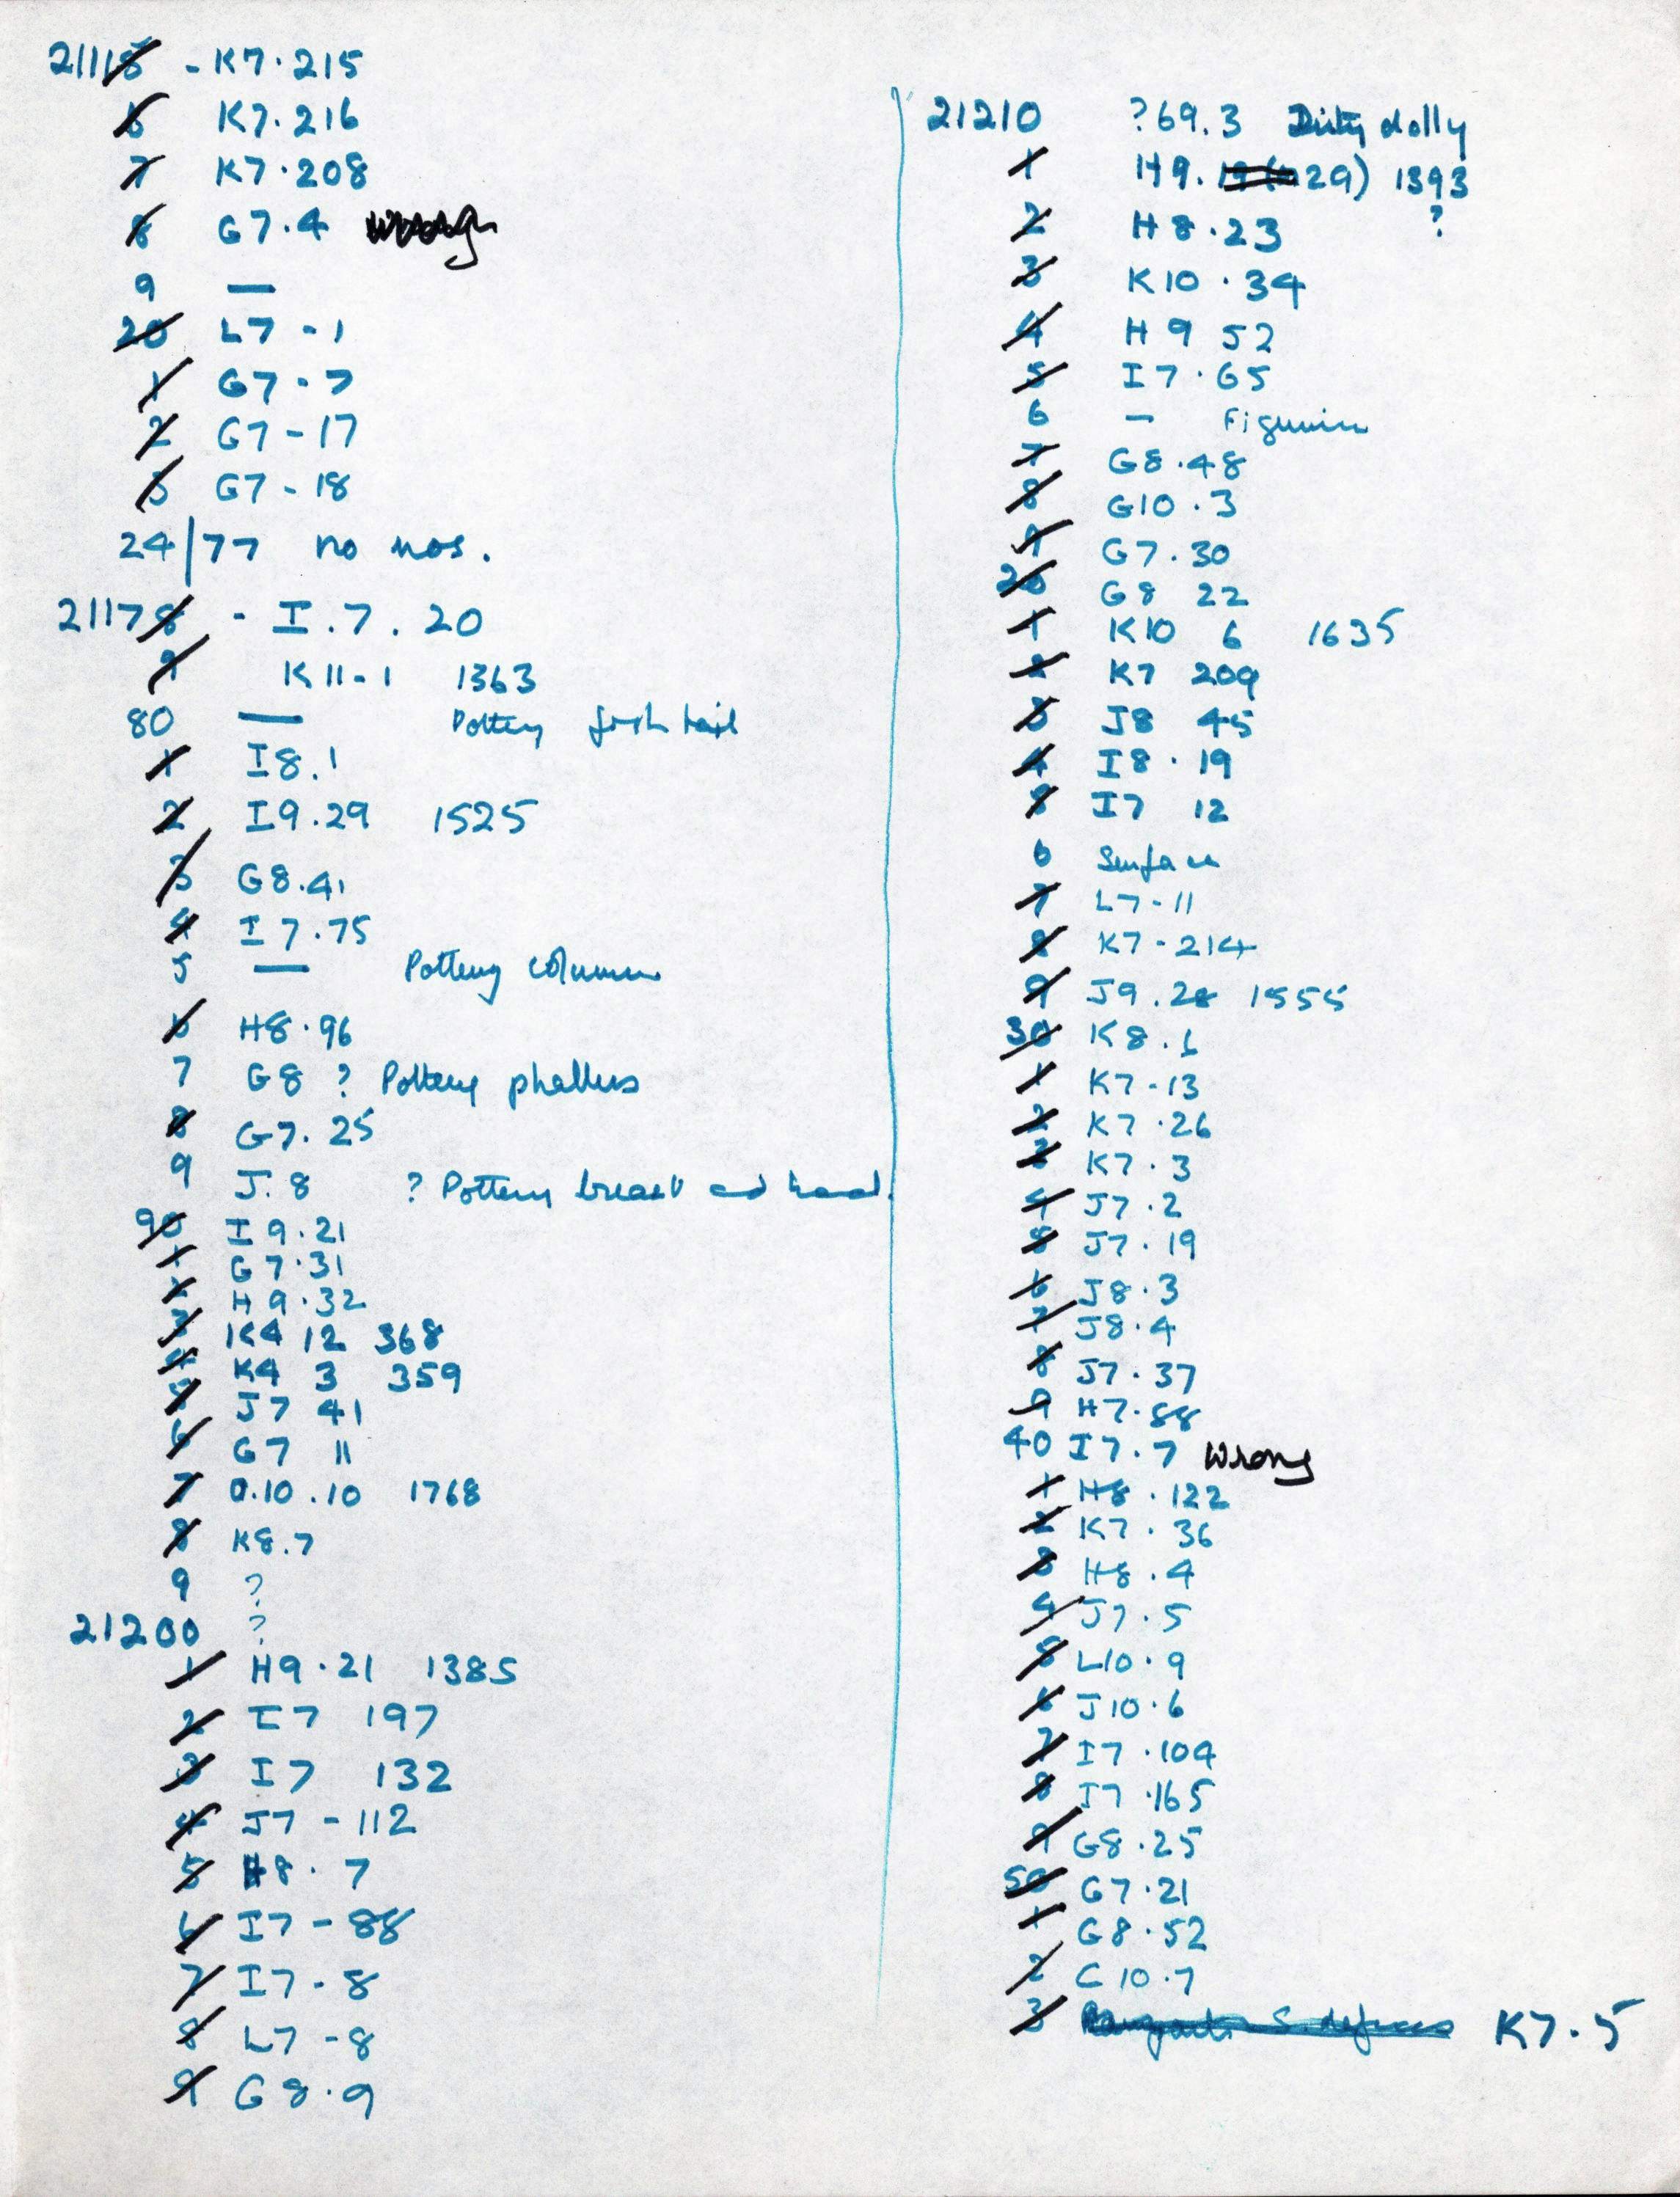 21115 - K7.215
6 K7.216
7 K7.208
8 G7.4
9 —
20 L7 - 1
1 G7 - 7
2 G7 - 17
3 G7 - 18
24/77 no nos.
21178 - I.7.20
9 K11-1 1363
80 — Pottery fish tail
1 I8.1
2 I9.29 1525
3 G8.41
4 I7.75
5 — Pottery column
6 H8.96
7 G8 ? Pottery phallus
8 G7.25
9 J.8 ? Pottery breast and hand.
90 I9.21
1 G7.31
2 H9.32
3 K4 12 368
4 K4 3 359
5 J7 41
6 G7 11
7 10.10 1768
8 K8.7
9 ?
21200 ?
1 H9.21 1385
2 I7 197
3 I7 132
4 J7 - 112
5 H8.7
6 I7 - 88
7 I7 - 8
8 L7 - 8
9 G8.9
21210 ?69.3 Dirty dolly
1 H9. 29) 1393
?
2 H8.23
3 K10.34
4 H9 52
5 I7.65
6 — Figurine
7 G8.48
8 G10.3
9 G7.30
20 G8 22
1 K10 6 1635
2 K7 209
3 J8 45
4 I8.19
5 I7 12
6 Surface
7 L7-11
8 K7-214
9 J9.28 1555
30 K8.6
1 K7-13
2 K7.26
3 K7.3
4 J7.2
5 J7.19
6 J8.3
7 J8.4
8 J7.37
9 H7.88
40 I7.7 Wrong
1 H8.122
2 K7.36
3 H8.4
4 J7.5
5 L10.9
6 J10.6
7 I7.104
8 I7.165
9 G8.25
50 G7.21
1 G8.52
2 C10.7
3 K7.5